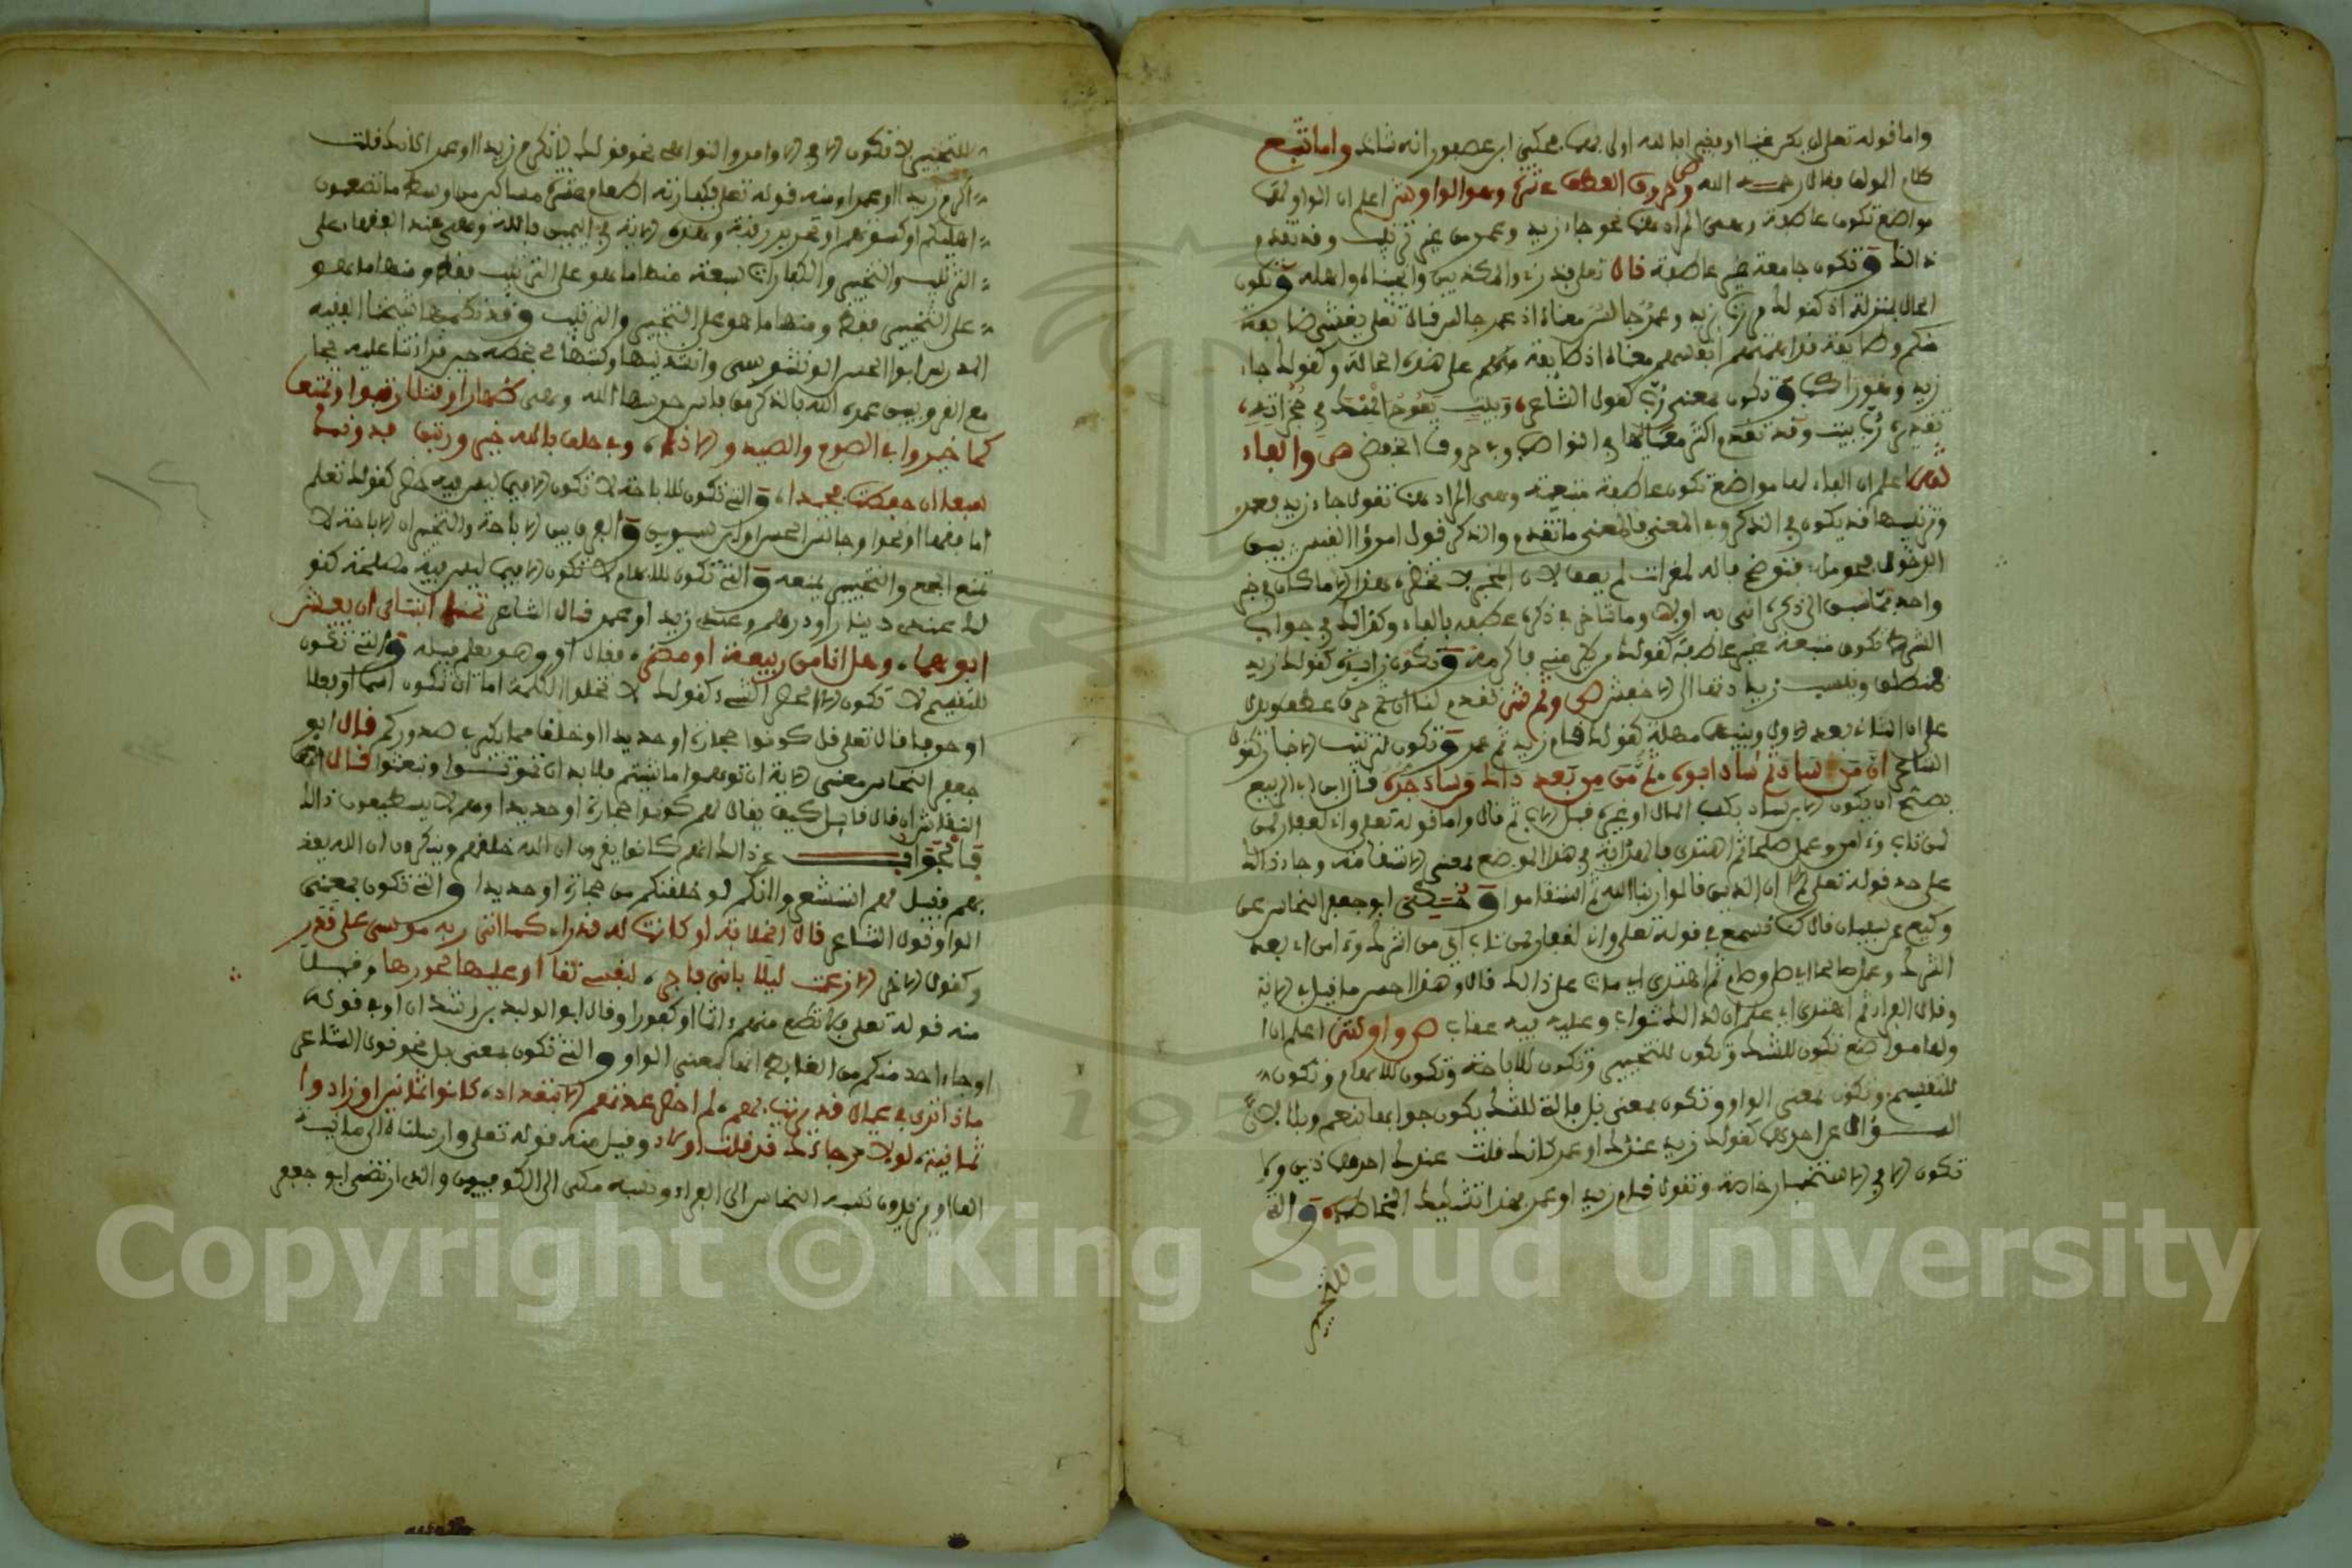 واما قوله تعلى ان يكن غنيا او فقيرا فالله اولى بهما فحكى ابن عصفور انه شاذ واما تتبع
كلام المولف فقال رحمه الله ص وحروف العطف عشرة وهي الواو ش اعلم ان الواو لها
مواضع تكون عاطفة وهي المراد هنا نحو جاء زيد وعمر من غير ترتيب وقد تقدم
ذالك وتكون جامعة غير عاطفة قال تعلى فذرني والمكذبين واهله وتكون
الحال بمنزلة اذ كقولك مررت بزيد وعمر جالس معناه اذ عمر جالس قال تعلى يغشى طايفة
منكم وطايفة قد اهمتهم انفسهم معناه اذ طايفة منكم على هذه الحالة وكقولك جاء
زيد وهو راكب وتكون بمعنى رب كقول الشاعر وبيت يفوح المسك في حجراته
تقديره رب بيت وقد تقدم اكثر معانيها في النواصب وفي حروف الخفض ص والفاء
ش اعلم ان الفاء لها مواضع تكون عاطفة متبعة وهي المراد هنا تقول جاء زيد فعمر
وترتيبها قد يكون في الذكر وفي المعنى فالمعنى ما تقدم والذكر قول امرؤ القيس بين
الدخول فحومل فتوضح فالمقرات لم يعف
واحد انى به اولا وما تاخر في ذكره عطفه بالفاء وكذالك في جواب
الشرط تكون متبعة غير عاطفة كقولك من يكرمني فاكرمه وتكون زايدة كقولك زيد
فمنطلق ص وثم ش تقدم لنا ان ثم حرف عطف يدل
على ان الثاني بعد الاول وبينهما مهلة كقولك قام زيد ثم عمر وتكون لترتيب الاخبار كقول
الشاعر ان من ساد ثم ساد ابوه ثم من بعد ذالك قد ساد جده قال ابن ابي الربيع
يصح ان يكون الاب ساد بكسب المال او غيره قبل الاب ثم قال واما قوله تعلى واني لغفار لمن
لمن تاب وءامن وعمل صالحا ثم اهتدى فالهداية في هذا الموضع بمعنى الاستقامة وجاء ذالك
على حد قوله تعلى ان الذين قالوا ربنا الله ثم استقاموا وحكى ابو جعفر النحاس عن
وكيع عن سفيان قال كنا نسمع في قوله تعلى واني لغفار لمن تاب اي من الشرك وءامن اي بعد
الشرك وعمل صالحا اي صلى وصام ثم اهتدى اي مات على ذالك قال وهذا احسن ما قيل في الاية
وقال الفراء ثم اهتدى اي علم ان لذالك ثواب وعليه فيه عقاب ص واو ش اعلم ان او
ولها مواضع تكون للشك وتكون للتخيير وتكون للاباحة وتكون للابهام وتكون
للتقسيم وتكون بمعنى الواو وتكون بمعنى بل فالة للشك يكون جوابها نعم وبلا
السؤال عن احدهما كقولك زيد عندك او عمر كانك قلت عندك احد هاذين ولا
تكون الا في الاستخبار خاصة وتقول قام زيد او عمر بهذا تشكيك المخاطب والتي
للتخيير
للتخيير لا تكون الا في الاوامر والنواهي نحو قولك لا تكرم زيدا او عمرا كانك قلت
اكرم زيدا او عمرا ومنه قوله تعلى فكفارته اطعام عشرة مساكين من اوسط ما تطعمون
اهليكم او كسوتهم او تحرير رقبة وهذه الاية في اليمين بالله وهي عند الفقهاء على
الترتيب والتخيير والكفارات سبعة منها ما هو على الترتيب فقط ومنها ما هو
على التخيير فقط ومنها ما هو على التخيير والترتيب وقد نظمها شيخنا الفقيه
المدرس ابوا الحسن الونشريسي وانشدنيها وكتبها لي بخطه حين قراءتنا عليه بجا
مع القرويين عمره الله بالذكر من فاس حرسها الله وهي ظهارا وقتلا رتبوا وتمتعا
كما خيروا في الصوم والصيد والاذى وفي حلف بالله خير ورتبن فدونك
سبعا ان حفظت فمجدا والتي تكون للاباحة لا تكون الا فيما ليس فيه حظر كقولك تعلم
اما فقها او نحوا وجالس الحسن او ابن سيرين والفرق بين الاباحة والتخيير ان الاباحة لا
تمنع الجمع والتخيير يمنعه والتي تكون للابهام لا تكون الا فيما ليس فيه مصلحة كقو
لك عندي دينار او درهم وعندي زيد او عمر قال الشاعر تمنى ابنتاي ان يعيش
ابوهما وهل انا من ربيعة او مضر فقال او وهو يعلم قبيله والتي تكون
للتقسيم لا تكون كقولك لا تخلوا الكلمة اما ان تكون اسما او فعلا
او حرفا قال تعلى قل كونوا حجارة او حديدا او خلقا مما يكبر في صدوركم قال ابو
جعفر النحاس معنى الاية ان توهموا ما شيتم فلا بد ان تموتوا وتبعثوا قال
ان قال قايل كيف يقال لهم كونوا حجارة او حديدا وهم لا يستطيعون ذالك
فالجواب عن ذالك انهم كانوا يقرون ان الله خلقهم وينكرون ان الله يعيد
هم فقيل لهم استشعروا انكم لو خلقتكم من حجارة او حديدا والتي تكون بمعنى
الواو قول الشاعر قال الخلافة او كانت له قدرا كما اتى ربه موسى على قدر
وكقول الاخر زعمت ليلا باني فاجر لنفسي تقاها او عليها فجورها وقيل
منه قوله تعلى ولا تطع منهم ءاثما او كفورا وقال ابو الوليد بن رشد ان او في قوله
او جاء احد منكم من الغايط انها بمعنى الواو والتي تكون بمعنى بل نحو قول الشاعر
ماذا ترى في عيال قد برمت بهم لم احص عدتهم الا بتعداد كانوا ثمانين او زادوا
ثمانية لولا رجاؤك قد قتلت اولاد وقيل منه قوله تعلى وارسلناه الى ماية
الف او يزيدون نسبه النحاس الى الفراء ونسبه مكي الى الكوفيين والذي ارتضى ابو جعفر
Copyright © King Saud University